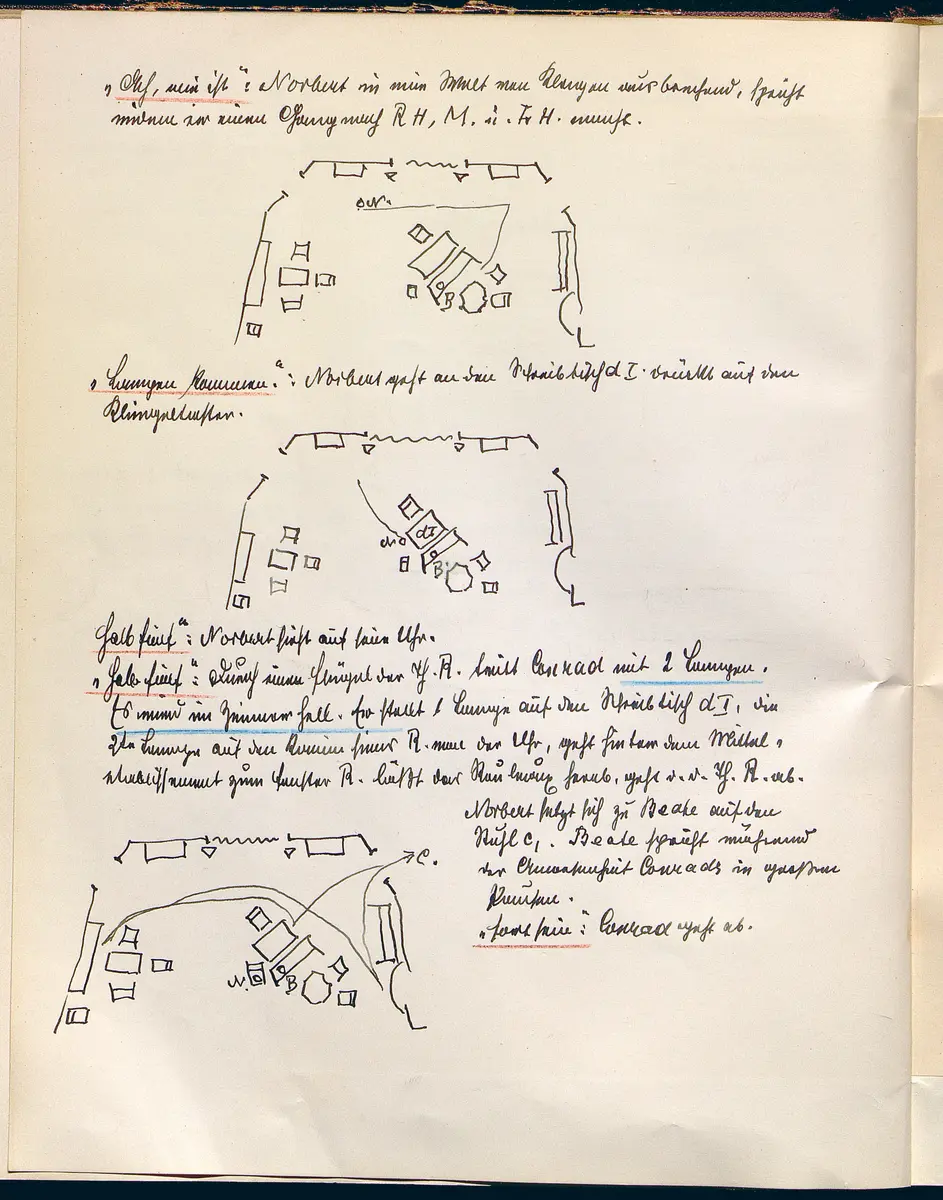 „Ach, wie ist“: Norbert in eine Welt von Klagen ausbrechend, spricht
indem er einen Gang nach R H, M. u. Fr H. macht.
N.
B
„Lampen kommen.“: Norbert geht an den Schreibtisch d I. drückt auf den
Klingeltaster.
N
d I
B
halb fünf“: Norbert sieht auf seine Uhr.
„Halb fünf“: Durch einen Flügel der Th. R. tritt Conrad mit 2 Lampen.
Es wird im Zimmer hell. Er stellt 1 Lampe auf den Schreibtisch d I, die
2te Lampe auf den Kamin hinter R. von der Uhr, geht hinter dem Mittel-
etablissement zum Fenster R. läßt das Rouleaux herab, geht d. d. Th. R. ab.
Norbert setzt sich zu Beate auf den
Stuhl c,. Beate spricht während
der Anwesenheit Conrads in großen
Pausen.
„fort sein“: Conrad geht ab.
C.
N.
c
B